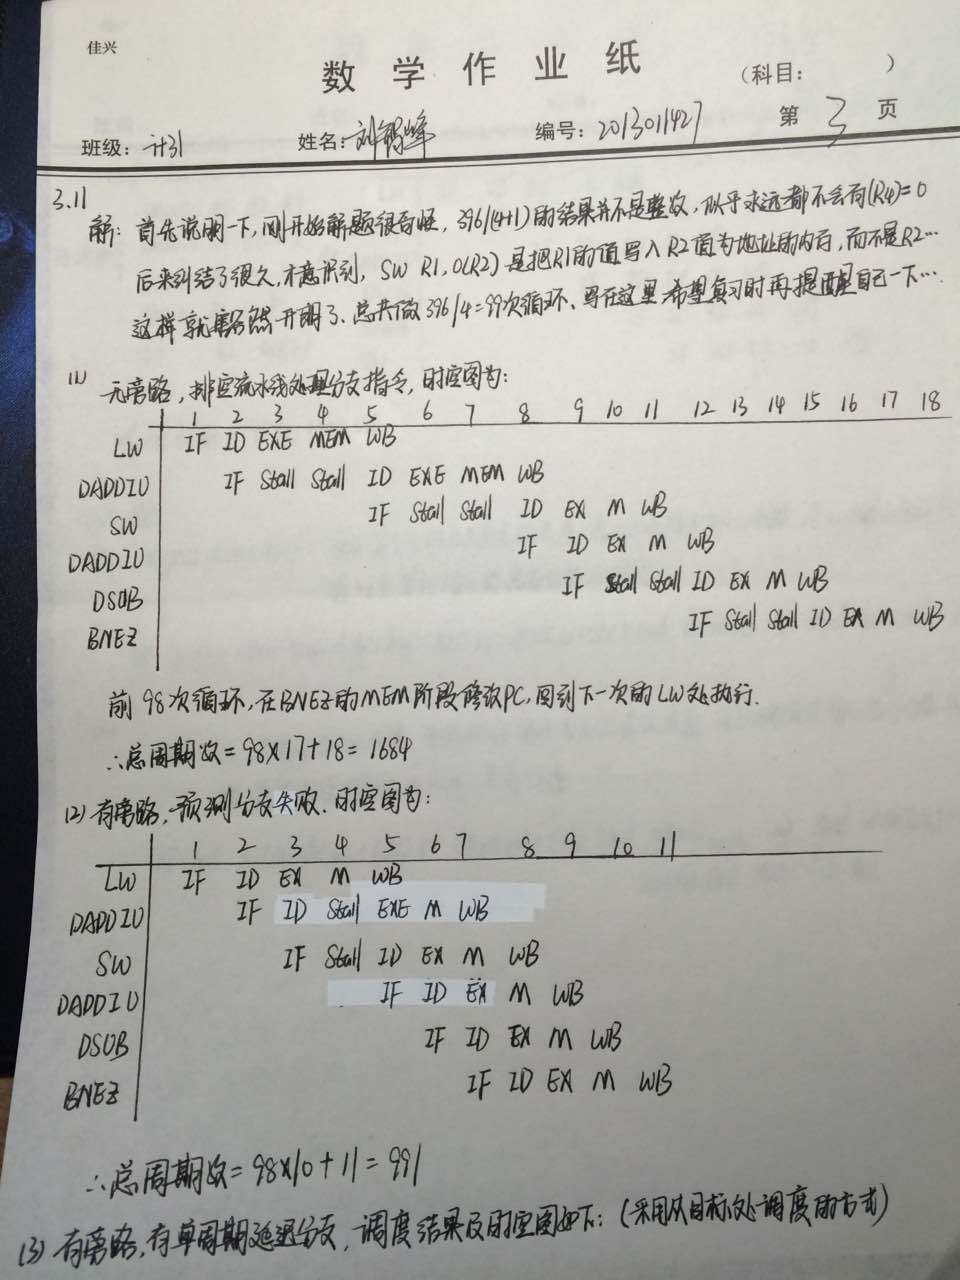 佳兴
数 学 作 业 纸
(科目: )
班级: 计31 姓名: 刘 编号: 2013011427 第 3 页
3.11
解: 首先说明一下, 刚开始解题很奇怪, 396/(4+1)的结果并不是整数, 似乎永远都不会有(R4)=0
后来纠结了很久, 才意识到, SW R1, 0(R2) 是把R1的值写入R2值为地址的内存, 而不是R2…
这样就豁然开朗了. 总共做396/4=99次循环. 写在这里希望复习时再提醒自己一下…
(1) 无旁路, 排空流水线处理分支指令, 时空图为:
1 2 3 4 5 6 7 8 9 10 11 12 13 14 15 16 17 18
LW IF ID EXE MEM WB
DADDIU IF Stall Stall ID EXE MEM WB
SW IF Stall Stall ID EX M WB
DADDIU IF ID EX M WB
DSUB IF Stall Stall ID EX M WB
BNEZ IF Stall Stall ID EX M WB
前98次循环, 在BNEZ的MEM阶段修改PC, 回到下一次的LW处执行.
∴总周期数=98×17+18=1684
(2) 有旁路, 预测分支失败. 时空图为:
1 2 3 4 5 6 7 8 9 10 11
LW IF ID EX M WB
DADDIU IF ID Stall EXE M WB
SW IF Stall ID EX M WB
DADDIU IF ID EX M WB
DSUB IF ID EX M WB
BNEZ IF ID EX M WB
∴总周期数=98×10+11=991
(3) 有旁路, 有单周期延迟分支, 调度结果及时空图如下: (采用从目标处调度的方式)